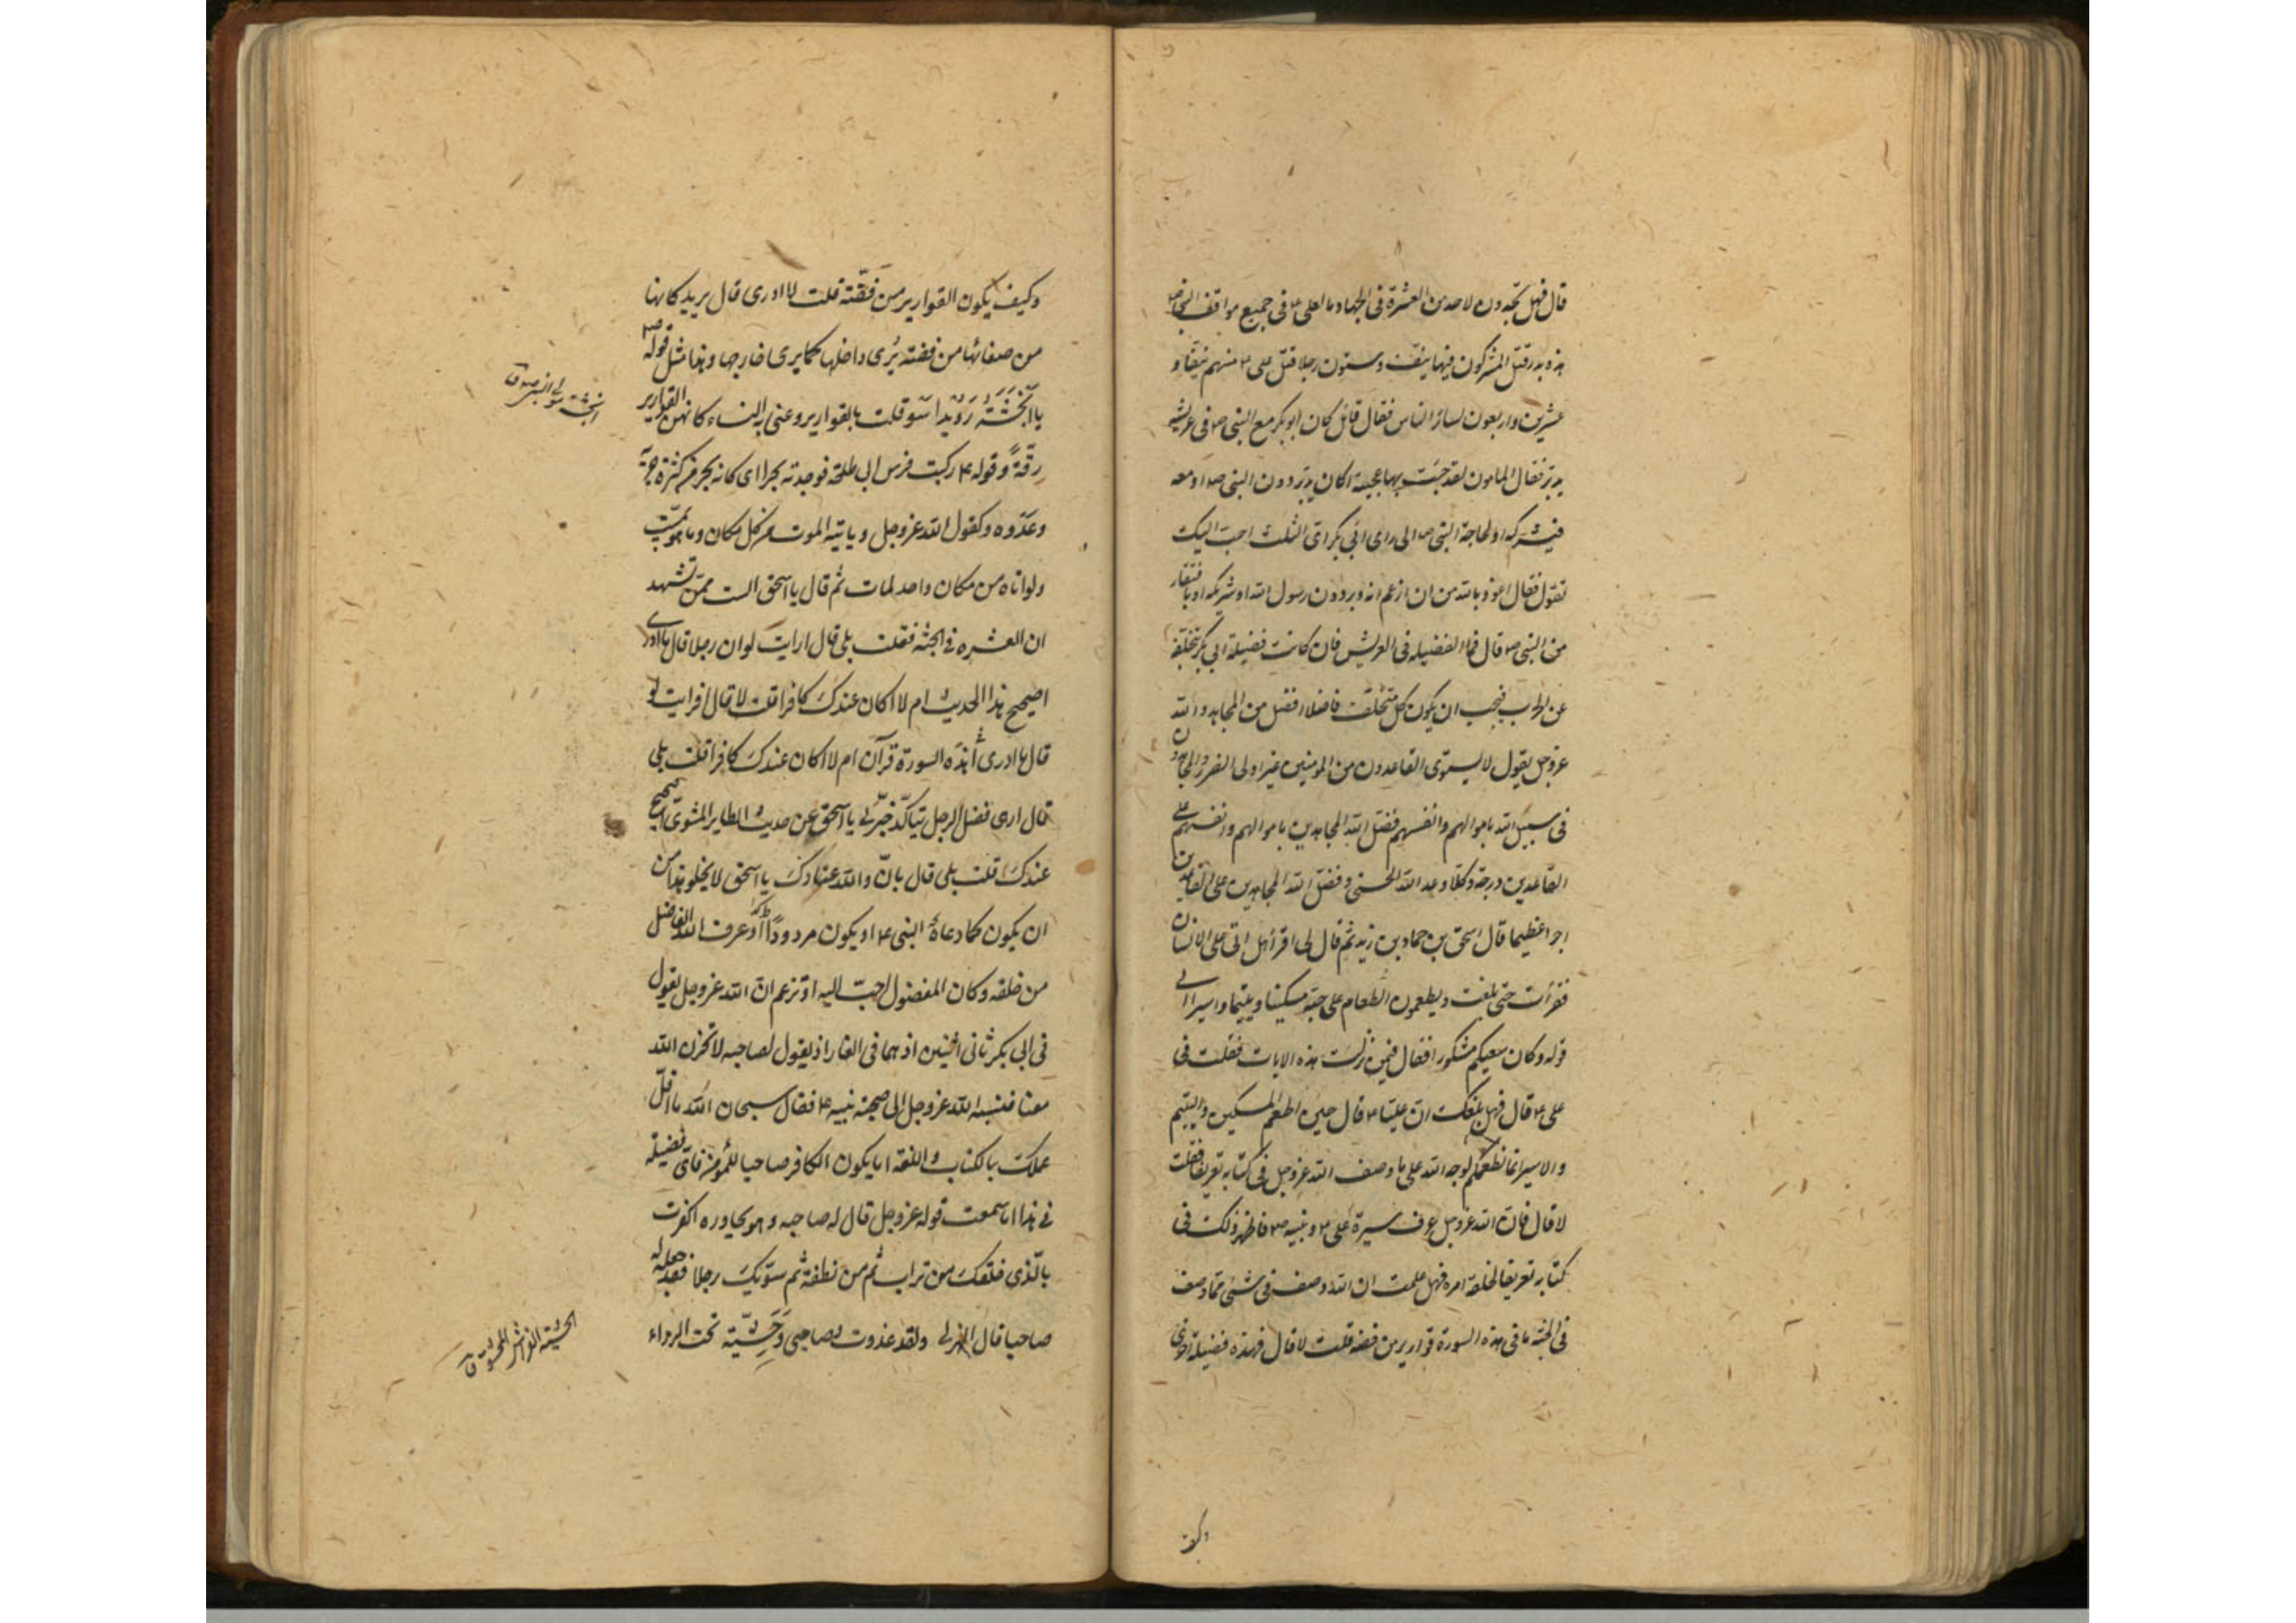 قال فهل تجدون لاحد من العشرة فى الجهاد ما لعلى ع فى جميع مواقف النبى ص
هذه بدر قتل المشركون فيها نيف وستون رجلا قتل على ع منهم نيفا و
عشرين واربعون لسائر الناس فقال قائل كان ابو بكر مع النبى ص فى عريشه
يدبر فقال المامون لقد جئت بها عجيبة اكان يدبر دون النبى ص او معه
فيشركه او لحاجة النبى ص الى راى ابى بكر اى الثلث احب اليك
تقول فقال اعوذ بالله من ان ازعم انه دبر دون رسول الله او شركه او بافتقار
من النبى ص قال فما الفضيله فى العريش فان كانت فضيلة ابى بكر بتخلفه
عن الحرب فيجب ان يكون كل متخلف فاضلا افضل من المجاهد والله
عزوجل يقول لا يستوى القاعدون من المؤمنين غير اولى الضرر والمجاهدون
فى سبيل الله باموالهم وانفسهم فضل الله المجاهدين باموالهم وانفسهم على
القاعدين درجة وكلا وعد الله الحسنى وفضل الله المجاهدين على القاعدين
اجرا عظيما قال اسحق بن حماد بن زيد ثم قال لى اقرأ هل اتى على الانسان
فقرأت حتى بلغت ويطعمون الطعام على حبه مسكينا ويتيما واسيرا الى
قوله وكان سعيكم مشكورا فقال فيمن نزلت هذه الايات فقلت فى
على ع قال فهل بلغك ان عليا ع قال حين اطعم المسكين واليتيم
والاسير انما نطعمكم لوجه الله على ما وصف الله عزوجل فى كتابه تعريفا فقلت
لا قال فان الله عزوجل عرف سيرة على ع ونبيه ص فاظهر ذلك فى
كتابه تعريفا لخلقه امره فهل علمت ان الله وصف فى شئ مما وصف
فى الجنة ما فى هذه السورة قوارير من فضه قلت لا قال فهذه فضيلة اخرى
وكيف
وكيف يكون القوارير من فضّة قلت لا ادرى قال يريد كانها
من صفائها من فضته يُرى داخلها كما يرى خارجها وهذا مثل قوله ص
يا انجشَةُ رُوَيْدا سَوقك بالقوارير وعنى به النساء كانهن القوارير
رقّةً وقوله ع ركبت فرس ابى طلحة فوجدته بحرا اى كانه بحر من كثرة جريه
وعَدْوه وكقول الله عزوجل وياتيه الموت من كل مكان وما هو بميّت
ولو اتاه من مكان واحد لمات ثم قال يا اسحق الست ممّن تشهد
ان العشره فى الجنّة فقلت بلى قال ارايت لو ان رجلا قال ما ادرى
اصحيح هذا الحديث ام لا اكان عندك كافرا قلت لا قال افرايت لو
قال ما ادرى أهذه السورة قرآن ام لا اكان عندك كافرا قلت بلى
قال ارى فضل الرجل يتاكّد خبّرنى يا اسحق عن حديث الطاير المشوىّ اصحيح
عندك قلت بلى قال بان والله عنادك يا اسحق لا يخلو هذا من
ان يكون كما دعاهُ النبى ع او يكون مردوداً او عرف الله الفاضل
من خلقه وكان المفضول احبّ اليه او تزعم ان الله عزوجل يقول
فى ابى بكر ثانى اثنين اذ هما فى الغار اذ يقول لصاحبه لا تحزن ان الله
معنا فنسبه الله عزوجل الى صحبة نبيه ع فقال سبحان الله ما اقلّ
علمك بالكتاب واللغة اما يكون الكافر صاحبا للمؤمن فاىّ فضيلة
فى هذا اما سمعت قوله عزوجل قال له صاحبه وهو يحاوره اكفرت
بالّذى خلقك من تراب ثم من نطفة ثم سوّيك رجلا فقد جعله له
صاحبا قال الهذلى ولقد غدوت وصاحبى وَحَشِيّة تحت الرداء